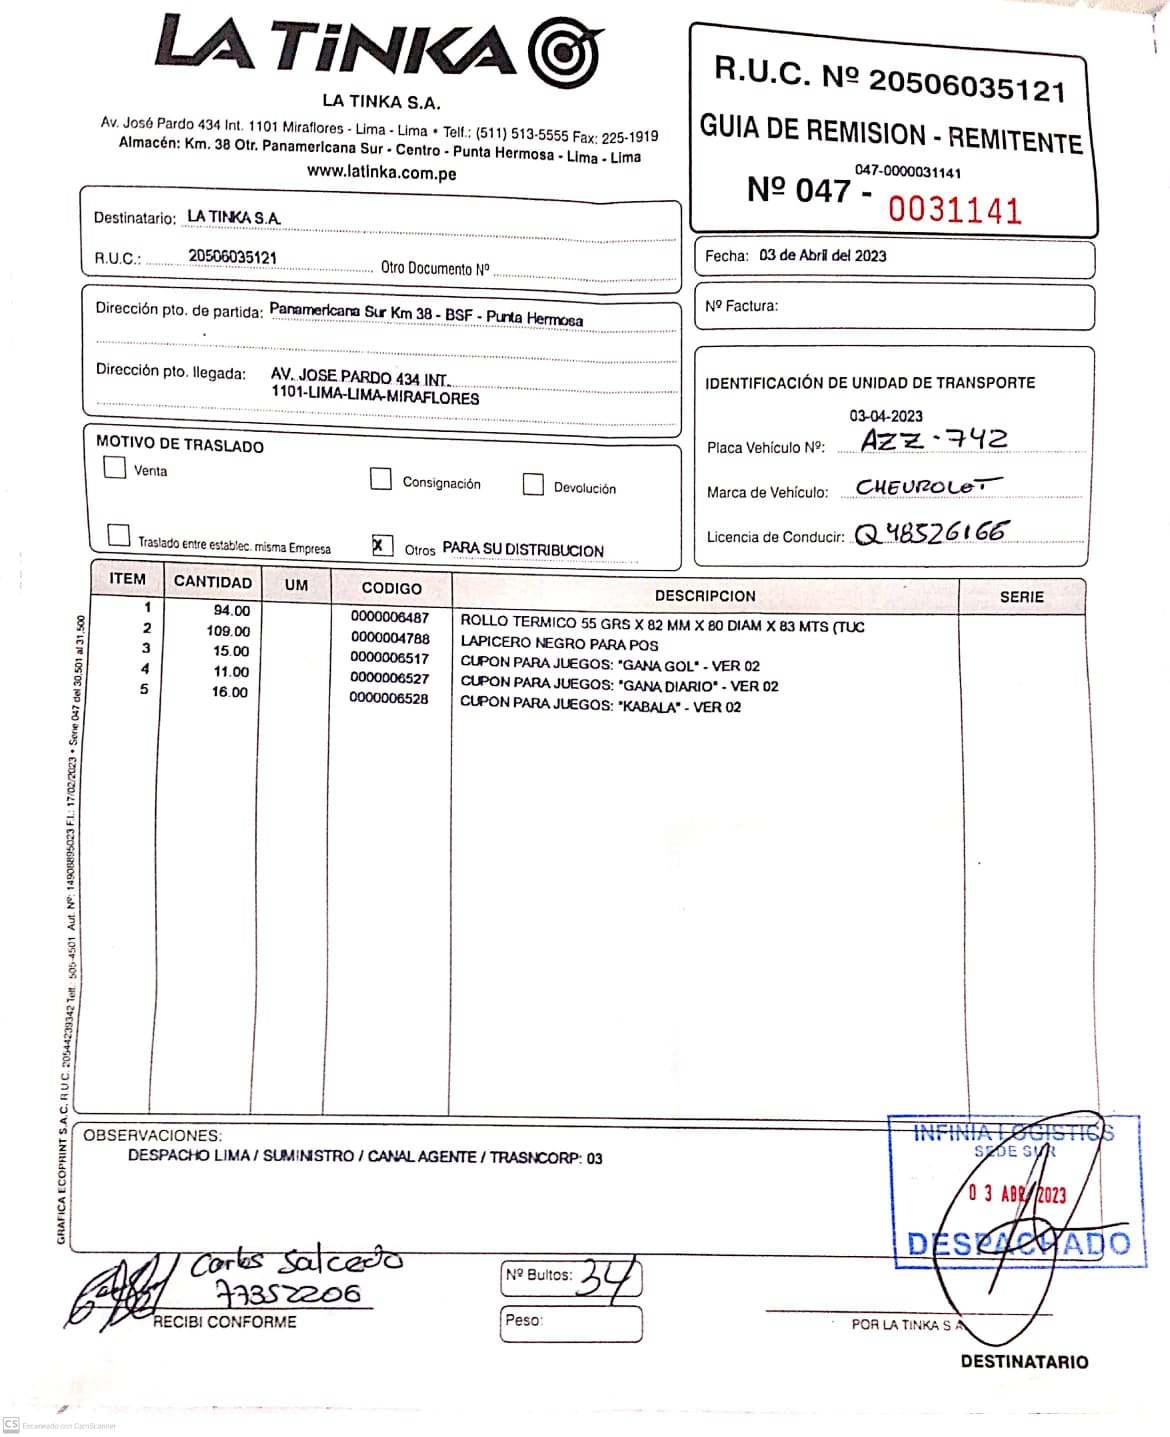 LA TiNKA
LA TINKA S.A.
Av. José Pardo 434 Int. 1101 Miraflores - Lima - Lima • Telf.: (511) 513-5555 Fax: 225-1919
Almacén: Km. 38 Otr. Panamericana Sur - Centro - Punta Hermosa - Lima - Lima
www.latinka.com.pe
R.U.C. Nº 20506035121
GUIA DE REMISION - REMITENTE
047-0000031141
Nº 047 - 0031141
Destinatario: LA TINKA S.A.
R.U.C.: 20506035121 Otro Documento Nº
Fecha: 03 de Abril del 2023
Nº Factura:
Dirección pto. de partida: Panamericana Sur Km 38 - BSF - Punta Hermosa
Dirección pto. llegada: AV. JOSE PARDO 434 INT.
1101-LIMA-LIMA-MIRAFLORES
IDENTIFICACIÓN DE UNIDAD DE TRANSPORTE
03-04-2023
Placa Vehículo Nº: AZZ-742
Marca de Vehículo: CHEVROLET
Licencia de Conducir: Q48526166
MOTIVO DE TRASLADO
Venta
Consignación
Devolución
Traslado entre establec. misma Empresa
X Otros PARA SU DISTRIBUCION
ITEM CANTIDAD UM CODIGO DESCRIPCION SERIE
1 94.00 0000006487 ROLLO TERMICO 55 GRS X 82 MM X 80 DIAM X 83 MTS (TUC
2 109.00 0000004788 LAPICERO NEGRO PARA POS
3 15.00 0000006517 CUPON PARA JUEGOS: "GANA GOL" - VER 02
4 11.00 0000006527 CUPON PARA JUEGOS: "GANA DIARIO" - VER 02
5 16.00 0000006528 CUPON PARA JUEGOS: "KABALA" - VER 02
GRAFICA ECOPRINT S.A.C. R.U.C. 20544239342 Telf.: 505-4501 Aut. Nº: 14908895023 F.I.: 17/02/2023 • Serie 047 del 30,501 al 31,500
OBSERVACIONES:
DESPACHO LIMA / SUMINISTRO / CANAL AGENTE / TRASNCORP: 03
INFINIA LOGISTICS
SEDE SUR
03 ABR 2023
DESPACHADO
Carlos Salcedo
77352206
RECIBI CONFORME
Nº Bultos: 34
Peso:
POR LA TINKA S A
DESTINATARIO
CS Escaneado con CamScanner